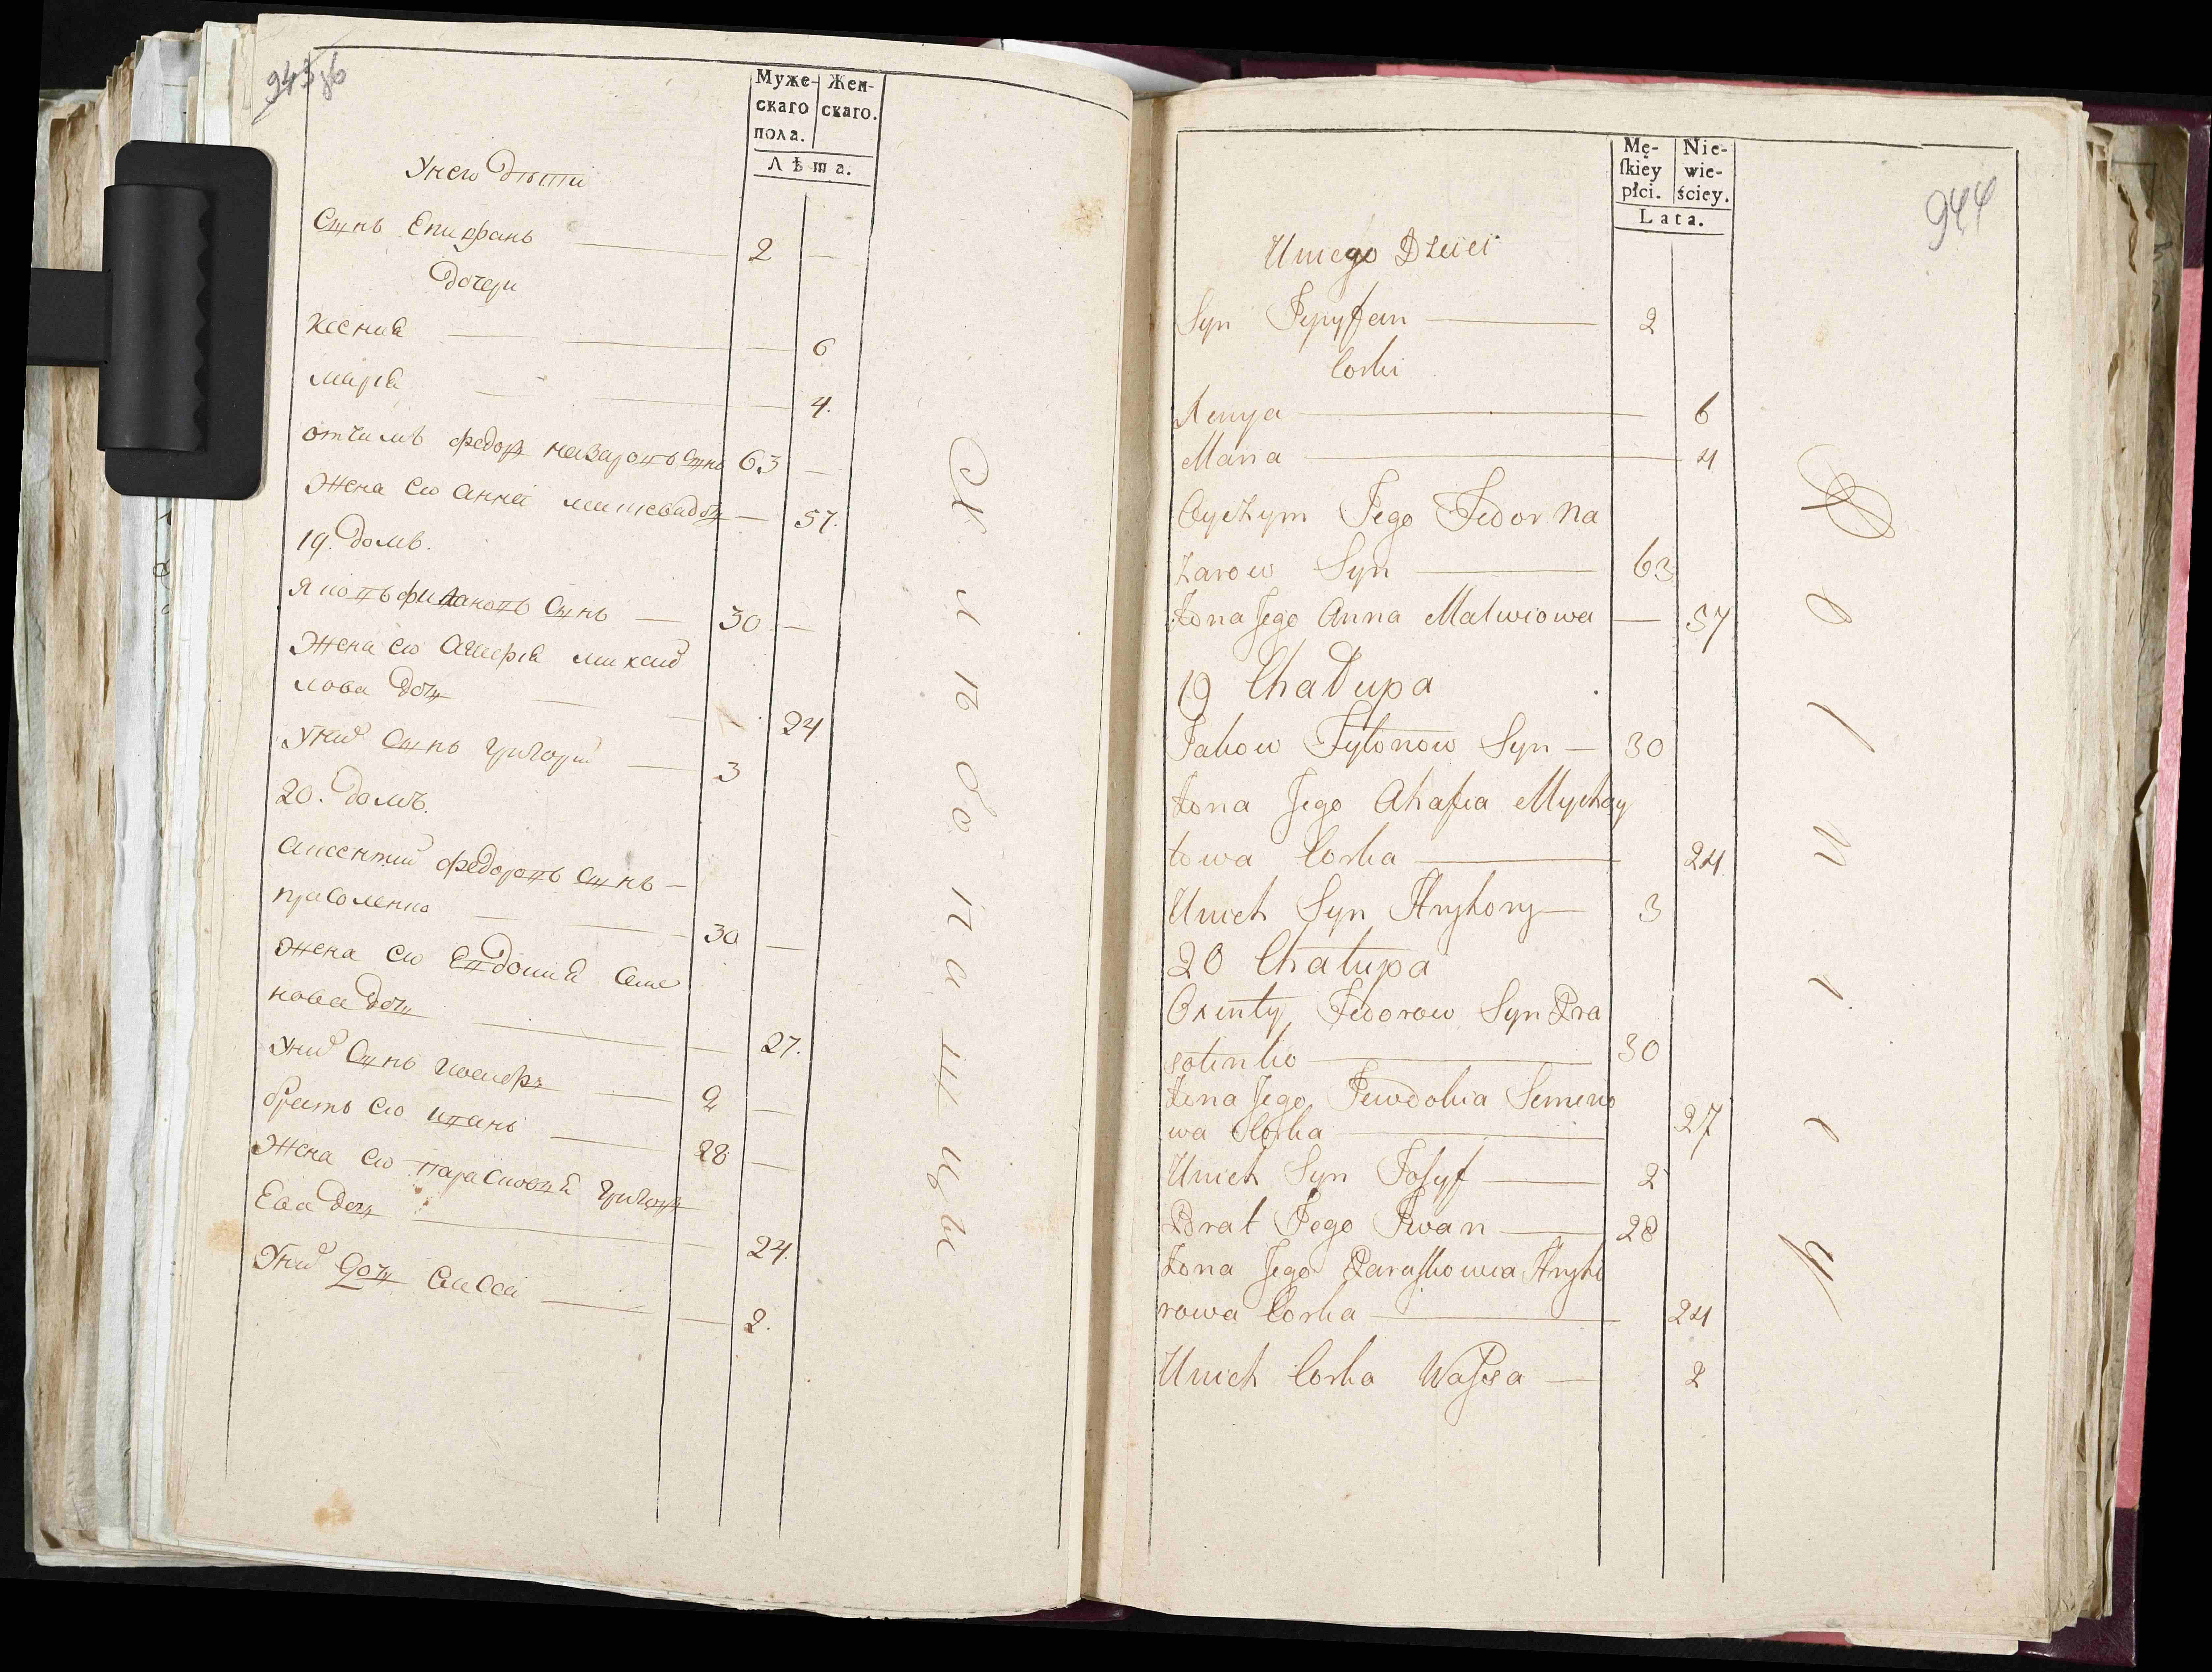 943
86
Муже-
скаго
пола.
Жен-
скаго.
Лѣта.
У нево дѣти
Сынъ Епифанъ 2 —
Дочери
Ксения 6
Мария 4.
отчимъ федоръ назаровъ сынъ 63 —
Жена ево анна матвѣева дочь — 57.
19. домъ.
Яковъ филоновъ сынъ — 30 —
Жена ево Агафия михай
лова дочь 24
У них сынъ григорий — 3
20. домъ.
Аксентий федоровъ сынъ —
прасоленко 30 —
Жена ево Евдокия Семе
нова дочь 27.
У них сынъ иосифъ 2 —
братъ ево иванъ 28 —
Жена ево парасковия григорь
ева дочь 24.
У них дочь 2.
944
Mę-
ſkiey
płci.
Nie-
wie-
ściey.
Lata.
Uniego Dzieci
Syn Jepyfan 2
Corki
Xenya 6
Maria 4
Oyczym Jego Fedor Na
zarow Syn 63
Żona Jego Anna Matwiowa — 57
19 Chałupa
Jakow Fylonow Syn — 30
Żona Jego Ahafia Mychay
łowa Corka 24
Unich Syn Hryhory — 3
20 Chałupa
Oxenty Fedorow Syn Pra
solenko 30
Żona Jego Jewdokia Semeno
wa Corka 27
Unich Syn Josyf 2
Brat Jego Iwan 28
Żona Jego Paraskowia Hryho
rowa Corka 24
Unich Corka Wassa — 2